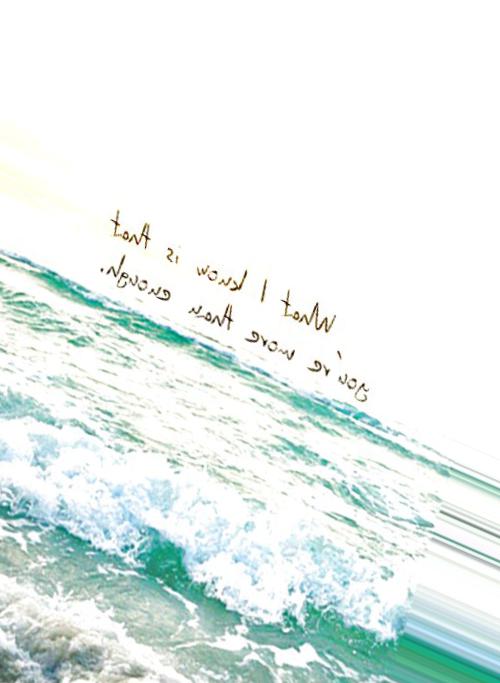 What I know is that
you're more than enough.